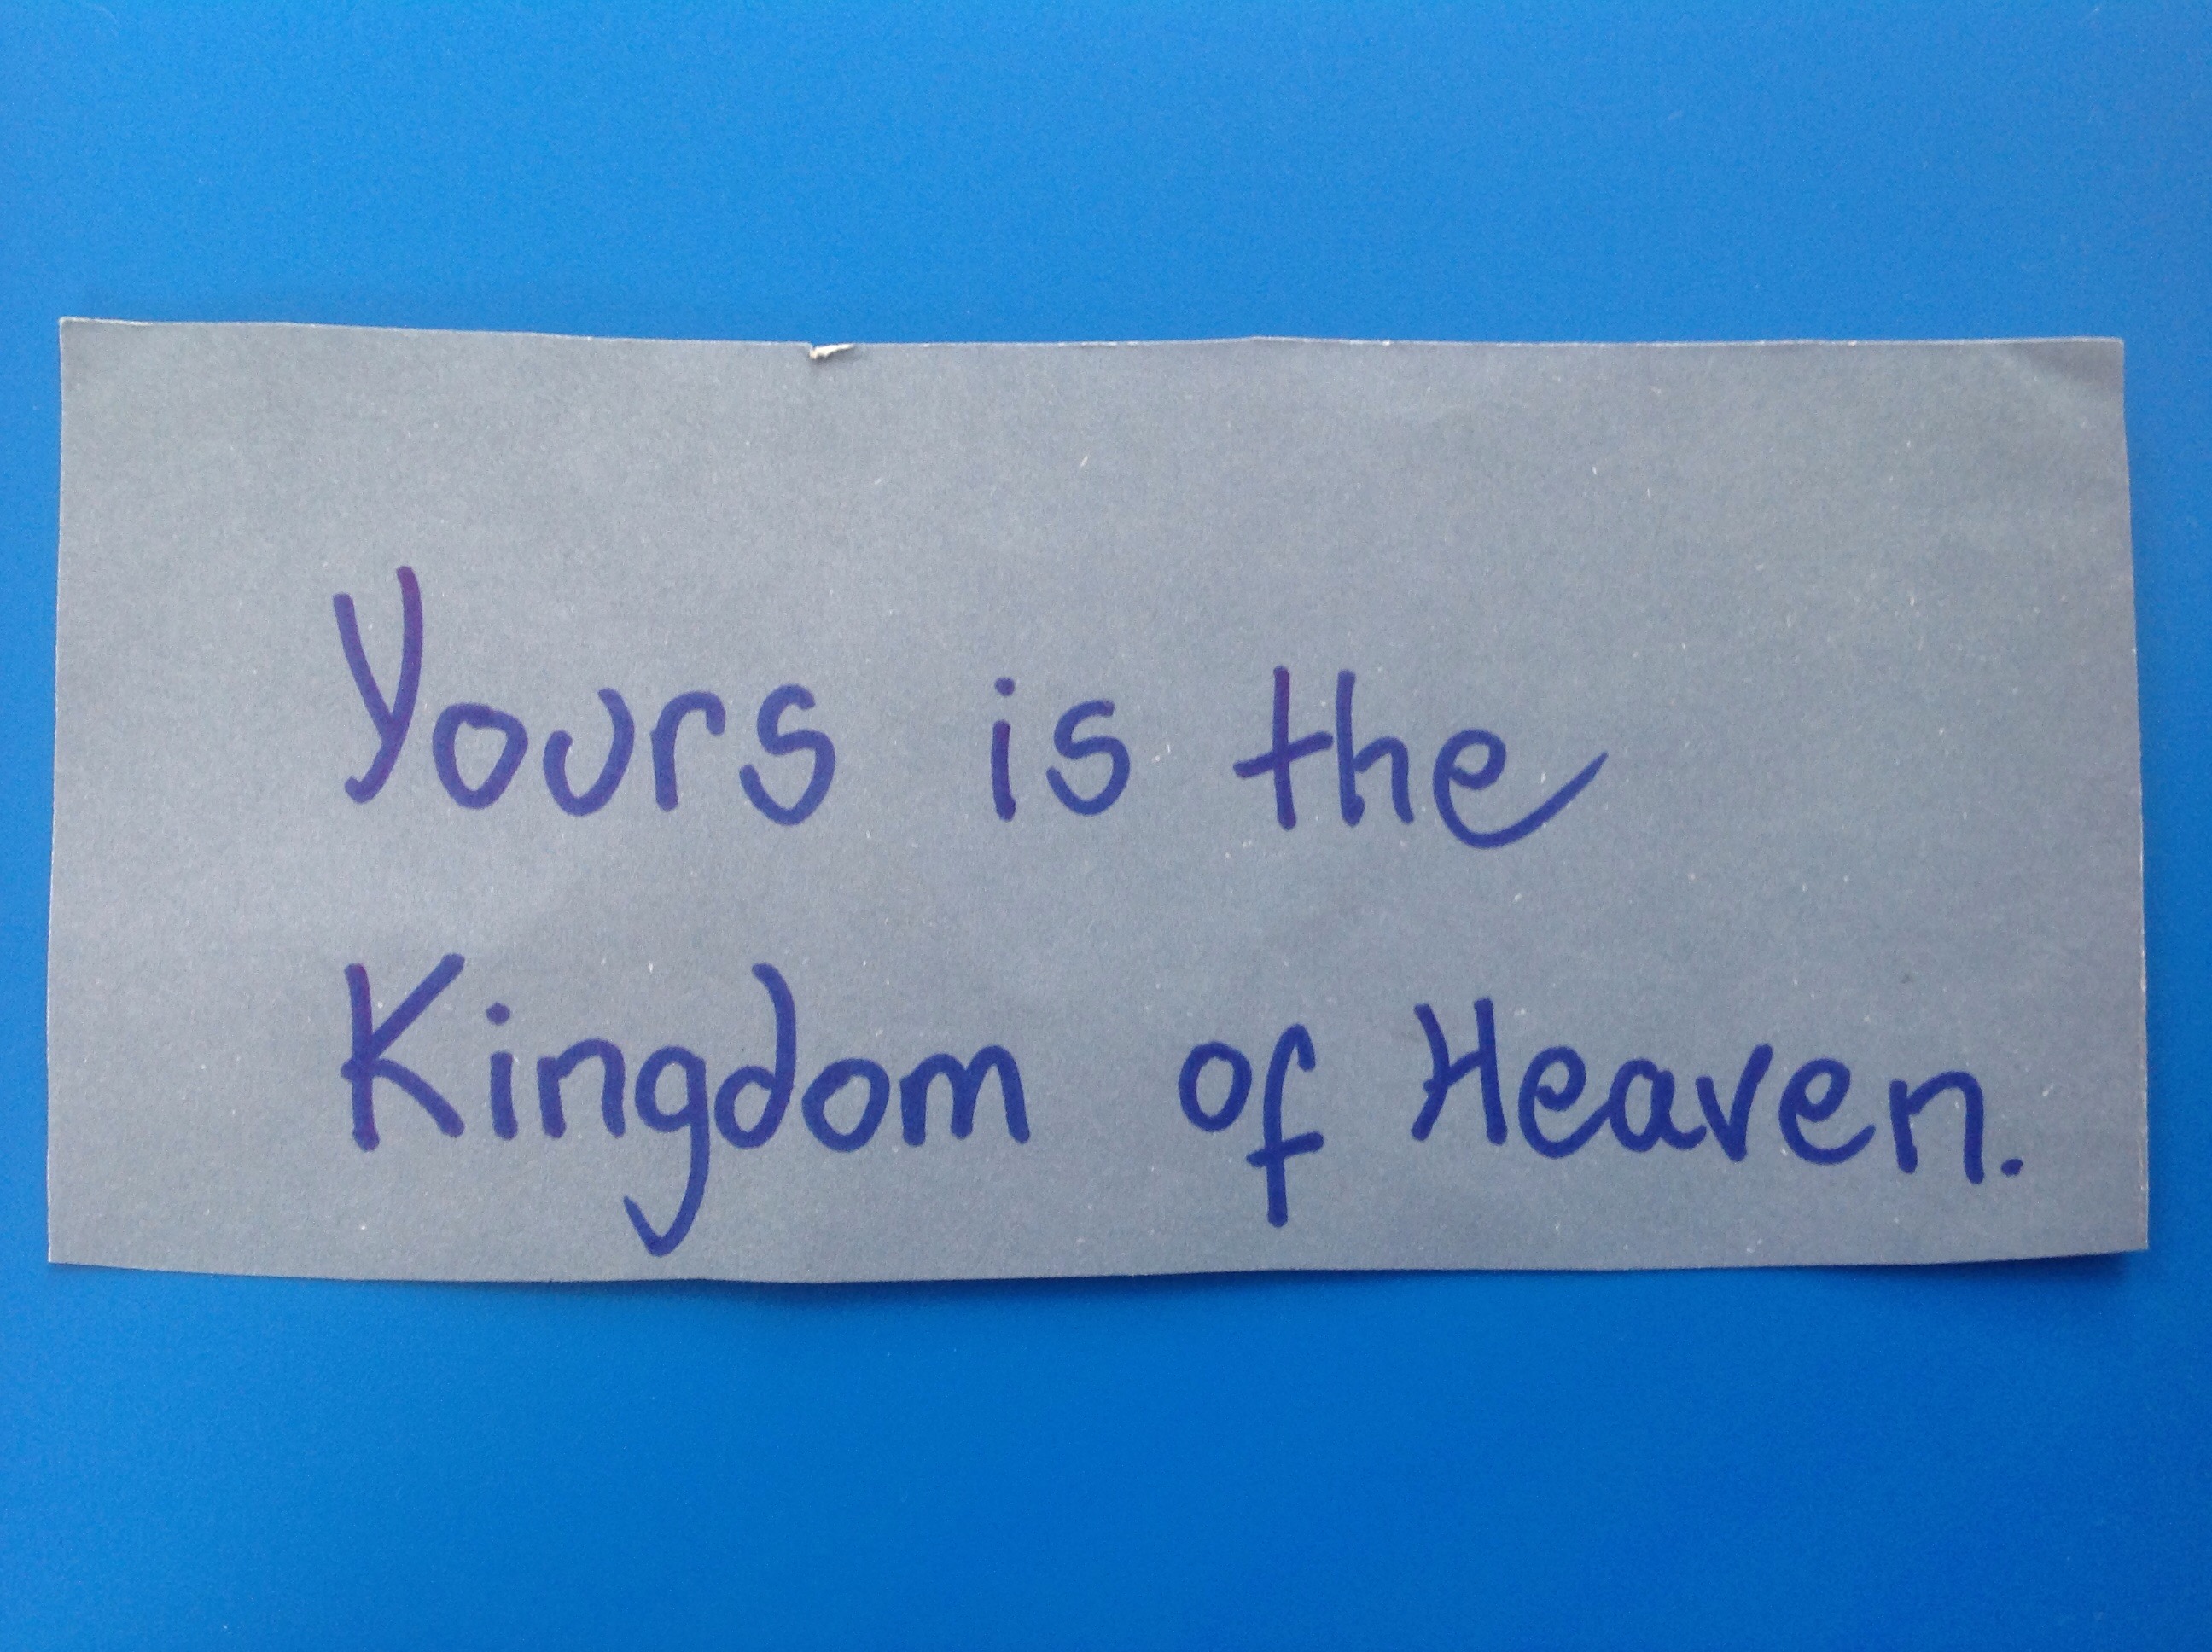 Yours is the
Kingdom of Heaven.